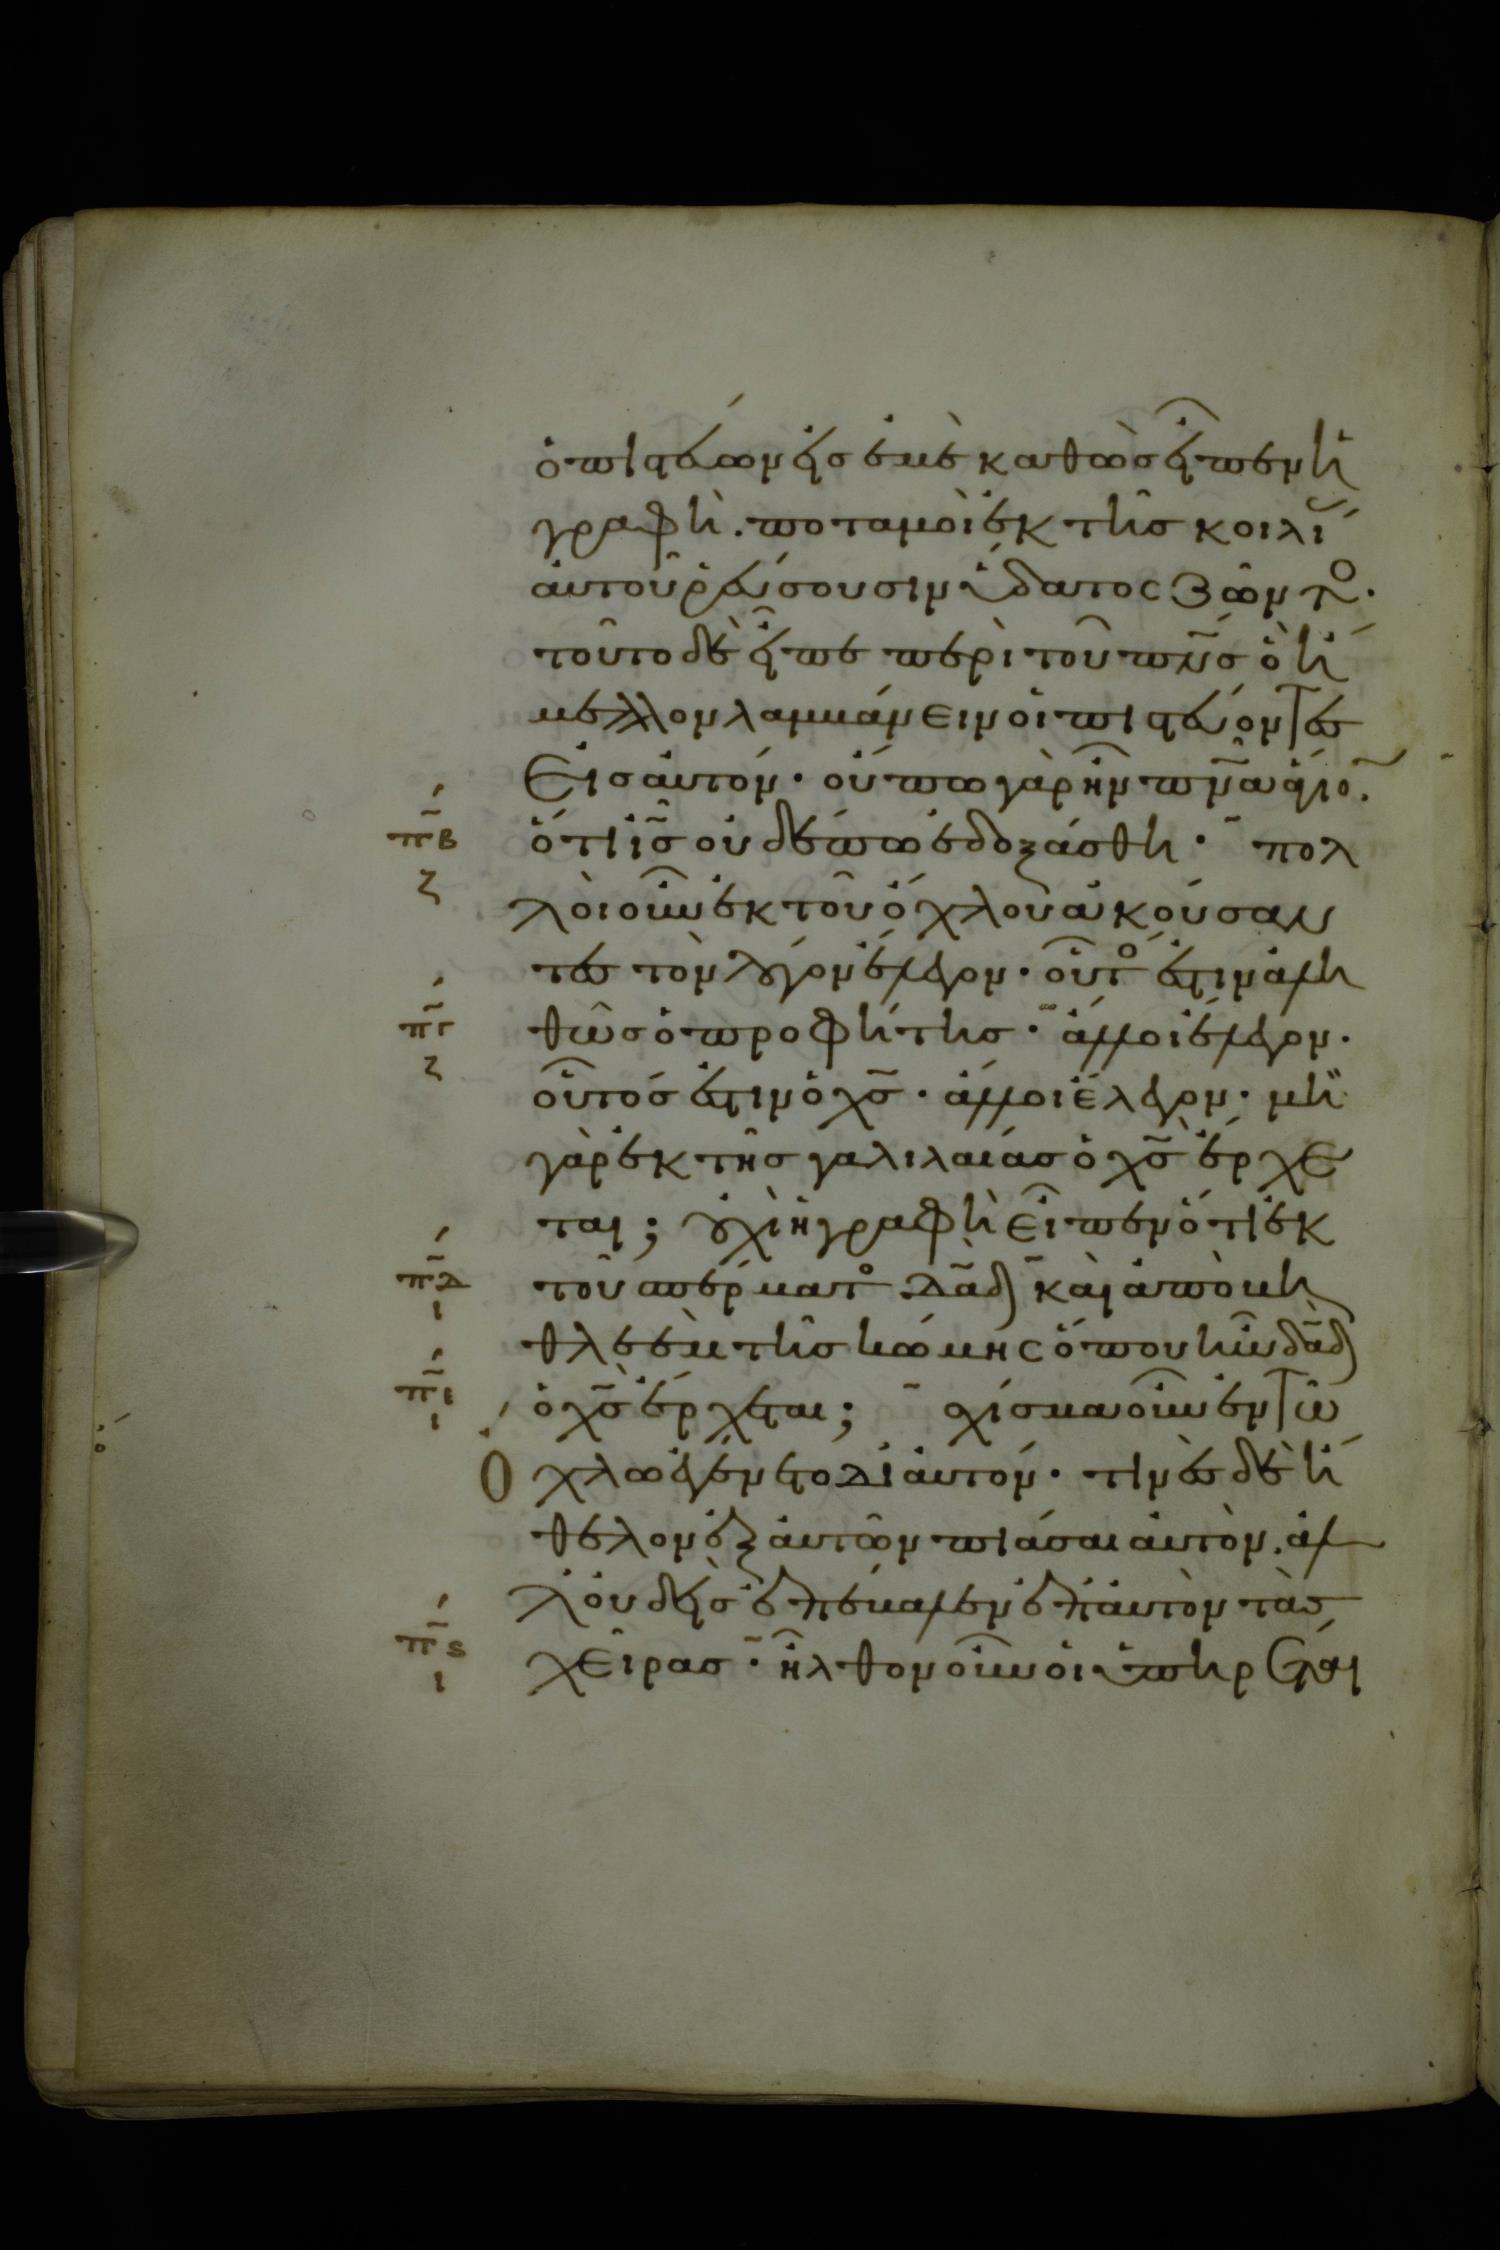 ὁ πιστεύων εἰς ἐμὲ καθὼς εἶπεν ἡ
γραφὴ. ποταμοὶ ἐκ τῆς κοιλί
αυτοῦ ῥεύσουσιν ὕδατος ζῶντο.
τοῦτο δὲ εἶπε περὶ τοῦ πν̅σ ὃ ἤ
μελλον λαμβάνειν οἱ πιστεύοντες
Εἰς αὐτόν· οὔπω γὰρ ἦν πν̅α ἅγιο̅.
πβ ὅτι ἰ̅ς οὐδέπω ἐδοξάσθη· πολ
ζ
λοὶ οὖν ἐκ τοῦ ὄχλου ἀκούσαν
τες τὸν λόγον ἔλεγον· οὗτο ἐστιν ἀλη
πγ θῶς ὁ προφήτης· ἄλλοι ἔλεγον·
ζ
οὗτός ἐστιν ὁ χ̅ς· ἄλλοι ἔλεγον· μὴ
γὰρ ἐκ τῆς γαλιλαίας ὁ χ̅ς ἔρχε
ται; οὐχὶ ἡ γραφὴ Εἶπεν ὅτι ἐκ
πδ τοῦ σπέρματο δα̅δ καὶ ἀπὸ βη
ι
θλεὲμ τῆς κώμης ὅπου ἦν δα̅δ
πι ὁ χ̅ς ἔρχεται; σχίσμα οὖν ἐν τῶ
ι
Ο χλω ἐγένετο δι αὐτόν· τινὲς δὲ ἤ
θελον ἐξ αὐτῶν πιάσαι αὐτὸν. ἀλ
λ οὐδεὶς ἐπέβαλεν ἐπ αὐτὸν τὰς
πς χεῖρας· ἦλθον οὖν οἱ ὑπηρέται
ι